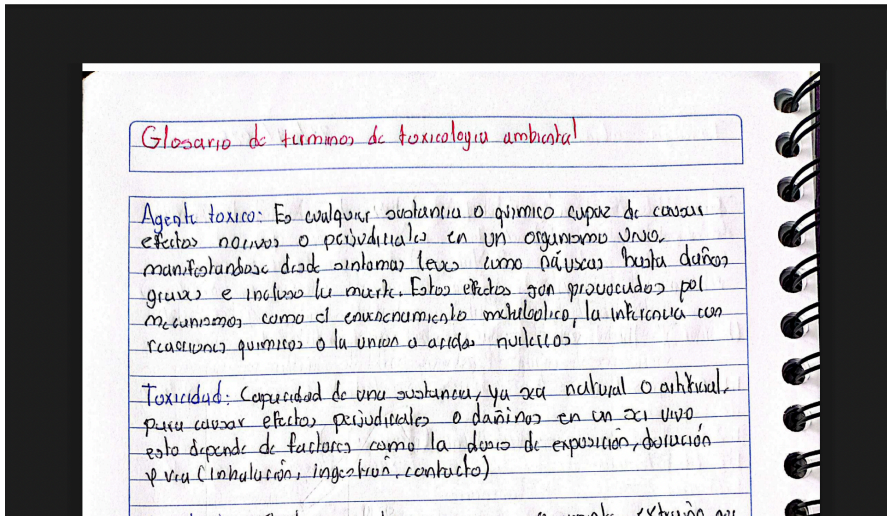 Glosario de terminos de toxicologia ambiental
Agente toxico: Es cualquier sustancia o quimico capaz de causar
efectos nocivos o perjudiciales en un organismo vivo,
manifestandose desde sintomas leves como náuseas hasta daños
graves e incluso la muerte. Estos efectos son provocados por
mecanismos como el envenenamiento metabolico, la inferencia con
reacciones quimicas o la union a acidos nucleicos
Toxicidad: Capacidad de una sustancia, ya sea natural o artificial,
para causar efectos perjudiciales o dañinos en un ser vivo
esto depende de factores como la dosis de exposición, duración
y via (inhalación, ingestión, contacto)